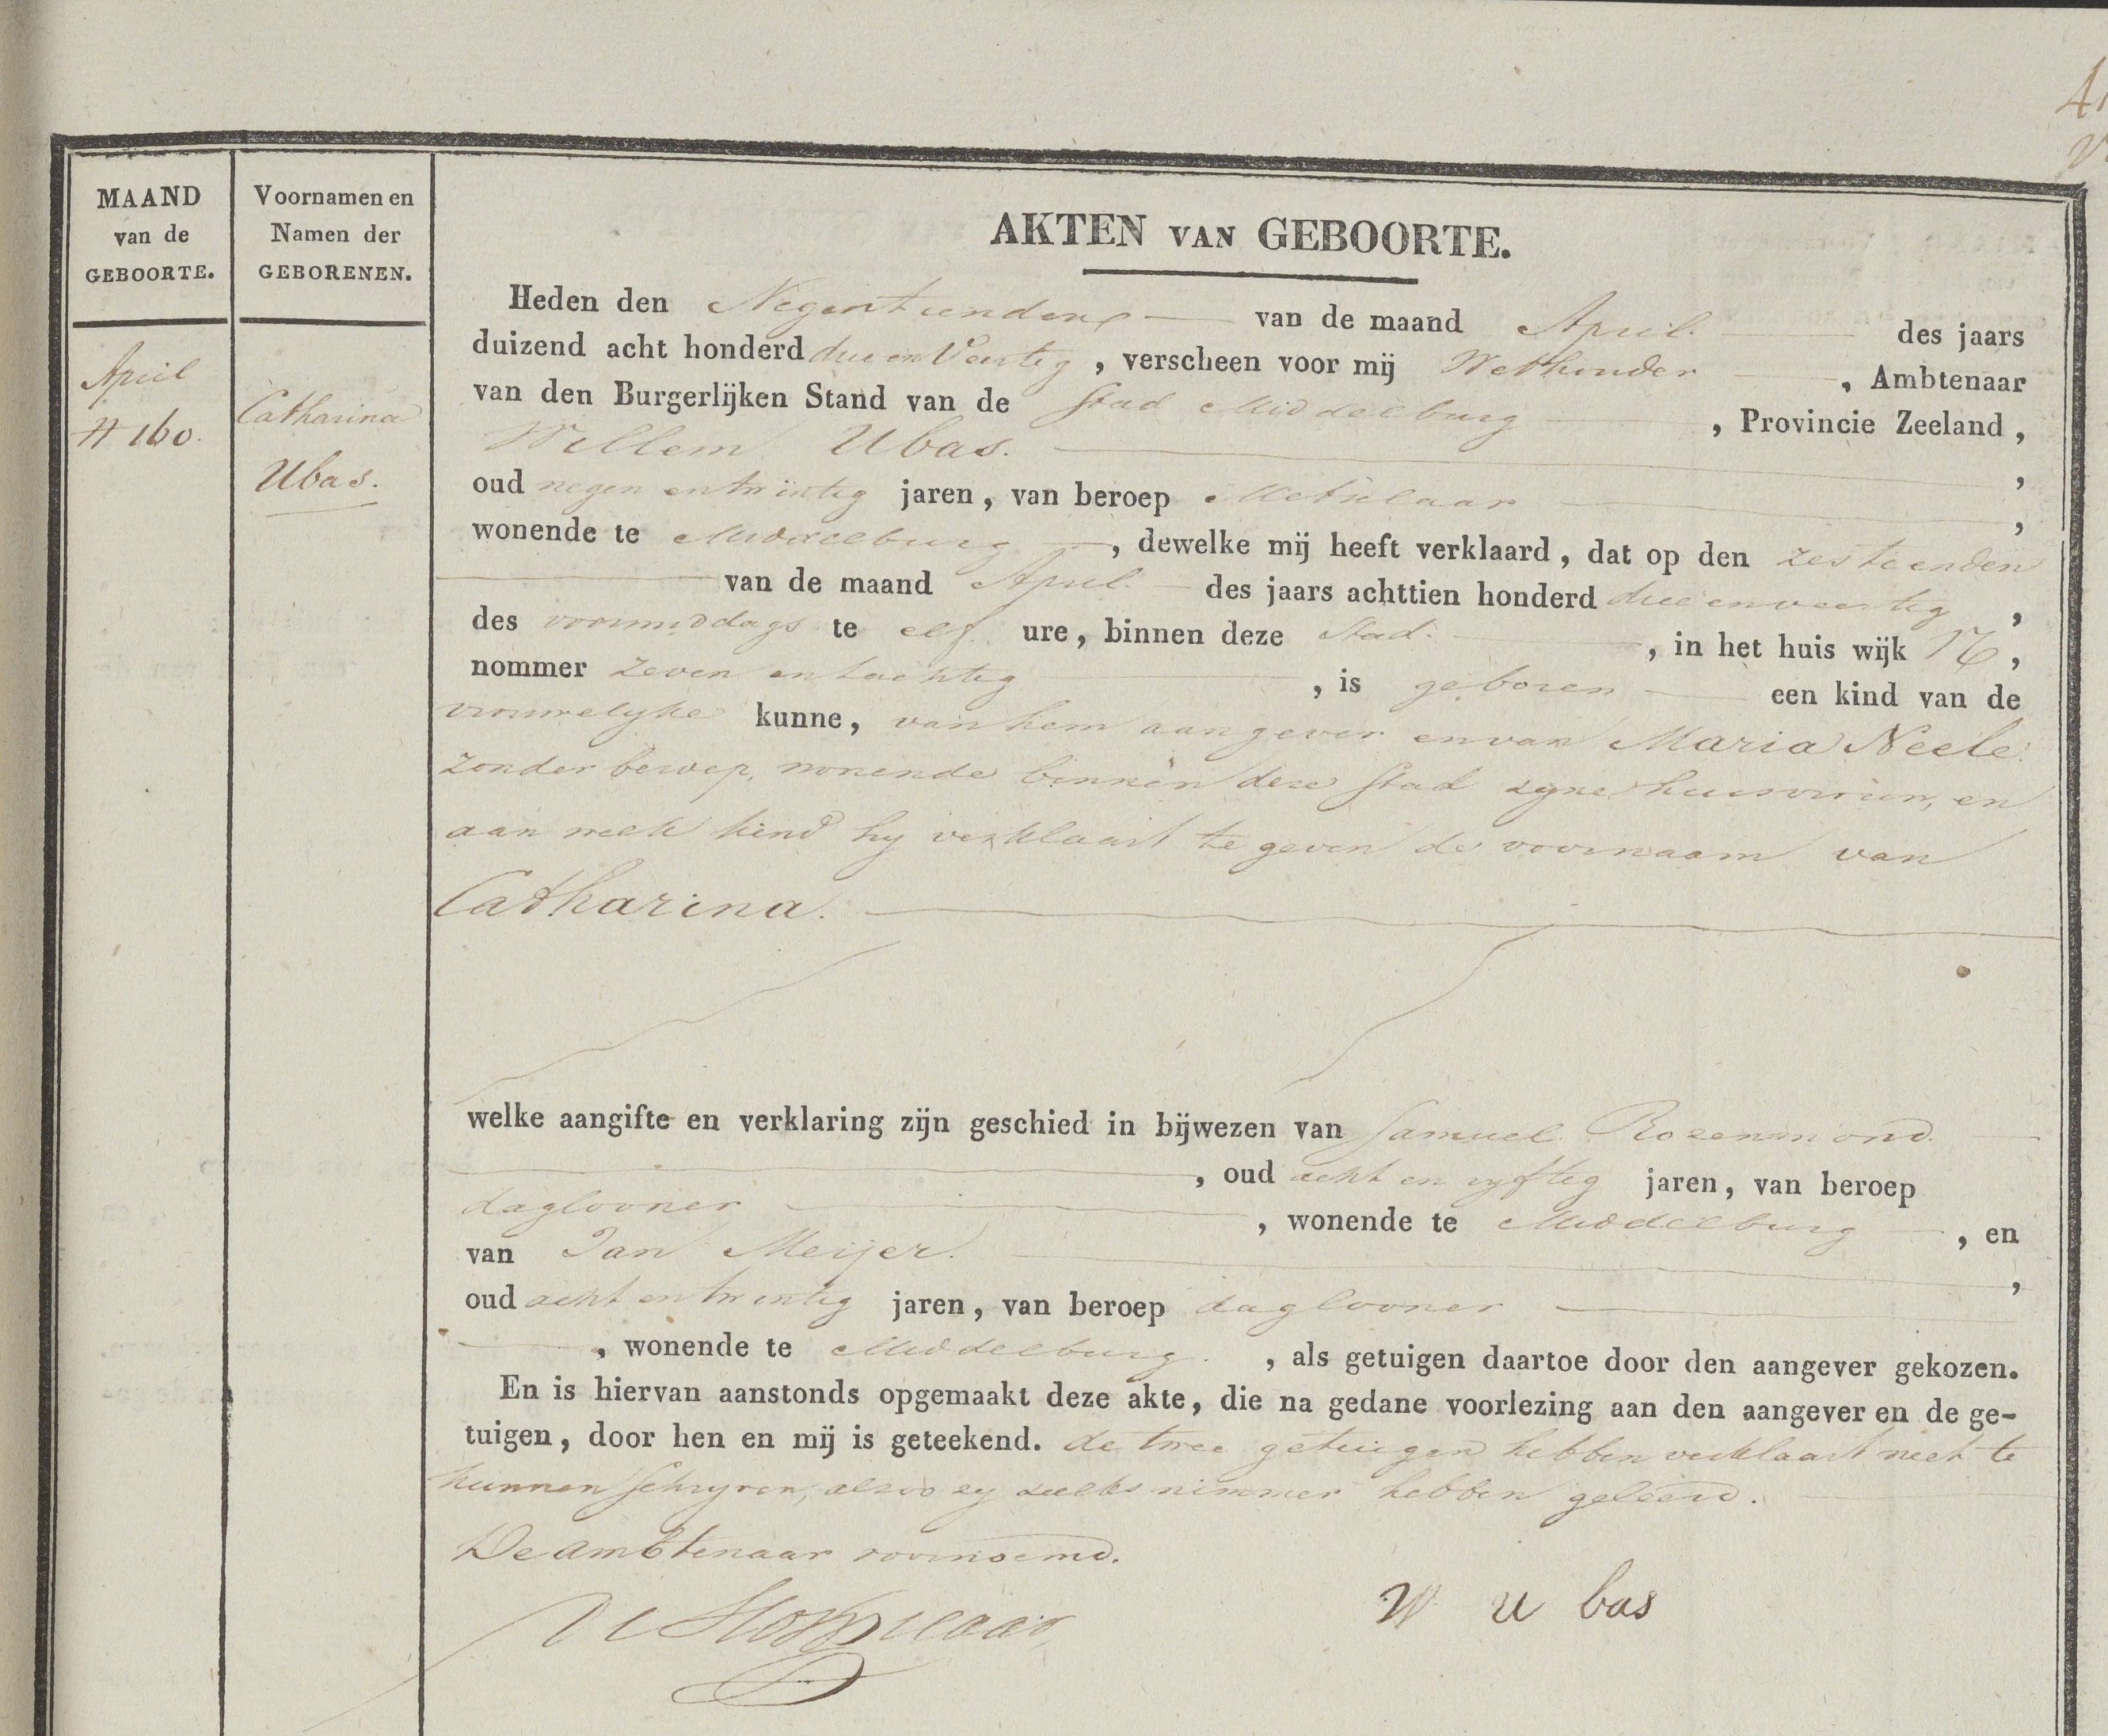 MAAND
van de
GEBOORTE.
Voornamen en
Namen der
GEBORENEN.
AKTEN VAN GEBOORTE.
April
N 160.
Catharina
Ubas.
Heden den Negentienden van de maand April des jaars
duizend acht honderd drie en Veertig, verscheen voor mij Wethouder, Ambtenaar
van den Burgerlijken Stand van de Stad Middelburg, Provincie Zeeland,
Willem Ubas.,
oud negen en twintig jaren, van beroep Metselaar,
wonende te Middelburg, dewelke mij heeft verklaard, dat op den zestienden
van de maand April des jaars achttien honderd drie en veertig,
des voormiddags te elf ure, binnen deze Stad., in het huis wijk,
nommer zeven en tachtig, is geboren een kind van de
vrouwelyke kunne, van hem aangever en van Maria Neele
zonder beroep, wonende binnen deze stad zyne huisvrouw, en
aan welk kind hy verklaart te geven de voornaam van
Catharina.
welke aangifte en verklaring zijn geschied in bijwezen van Samuel Rozenmond
, oud acht en vyftig jaren, van beroep
daglooner, wonende te Middelburg, en
van Jan Meijer.,
oud acht en twintig jaren, van beroep daglooner
, wonende te Middelburg., als getuigen daartoe door den aangever gekozen.
En is hiervan aanstonds opgemaakt deze akte, die na gedane voorlezing aan den aangever en de ge-
tuigen, door hen en mij is geteekend. de twee getuigen hebben verklaart niet te
kunnen schryven, alzoo zy zulks nimmer hebben geleerd.
De ambtenaar voornoemd.
W U bas